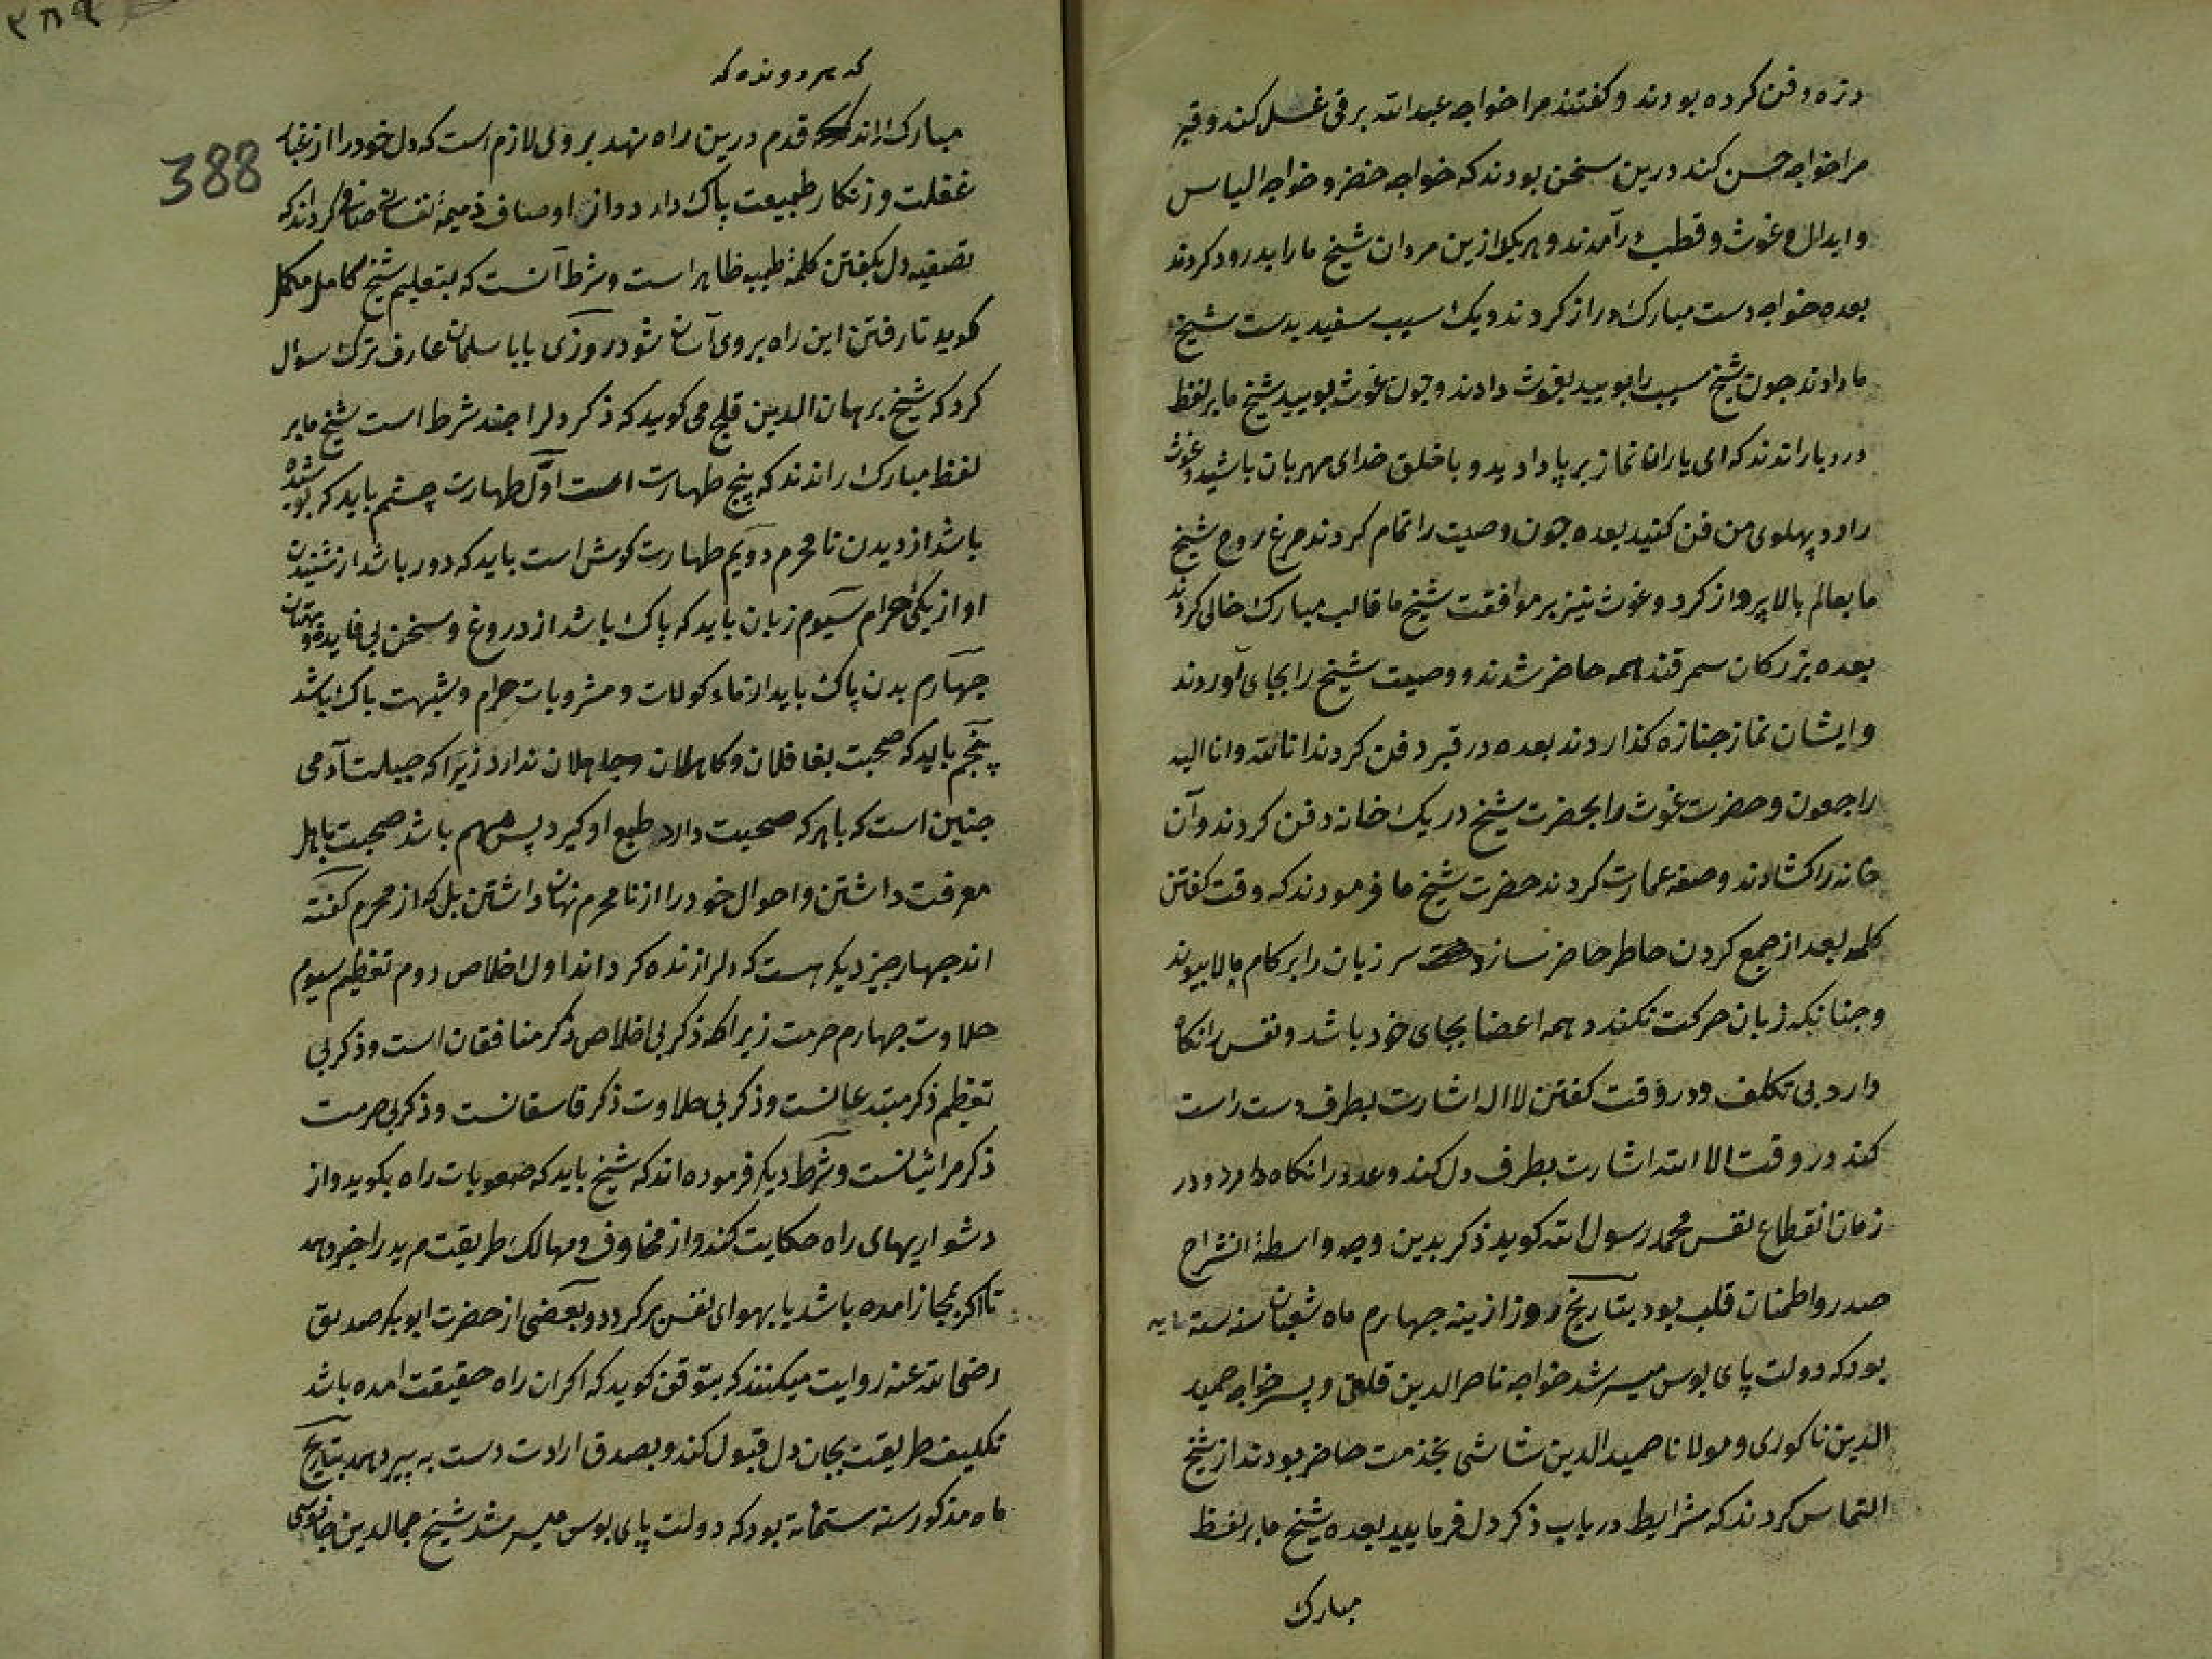 دزه دفن کرده بودند و کفتند مرا خواجه عبدالله برقی غسل کند و قبر
مرا خواجه حسن کند درین سخن بودند که خواجه خضر و خواجه الیاس
و ابدال و غوث و قطب درآمدند و هریکی ازین مردان شیخ ما را بدرود کردند
بعده خواجه دست مبارک دراز کردند و یک سیب سفید بدست شیخ
ما دادند جون شیخ سیب را بویید بغوث دادند و جون غوث بویید شیخ ما بر لفظ
درربار راندند که ای یاران نماز برپا دارید و با خلق خدای مهربان باشید و غوث
را در پهلوی من دفن کنید بعده جون وصیت را تمام کردند مرغ روح شیخ
ما بعالم بالا پرواز کرد و غوث نیز بر موافقت شیخ ما قالب مبارک خالی کردند
بعده بزرکان سمرقند همه حاضر شدند و وصیت شیخ را بجای آوردند
و ایشان نماز جنازه کذاردند بعده در قبر دفن کردند انا لله و انا الیه
راجعون و حضرت غوث را بحضرت شیخ در یک خانه دفن کردند و آن
خانه را کشادند و صفه عمارت کردند حضرت شیخ ما فرمودند که وقت کفتن
کلمه بعد از جمع کردن خاطر حاضر سازد سر زبان را بر کام بالا پیوند
و جنانکه زبان حرکت نکند و همه اعضا بجای خود باشد و نفس را نکاه
دارد بی تکلف و در وقت کفتن لا اله اشارت بطرف دست راست
کند در وقت الا الله اشارت بطرف دل کند و عدد را نکاه دارد و در
زمان انقطاع نفس محمد رسول الله کوید ذکر بدین وجه واسطهٔ انشراح
صدر و اطمنان قلب بود بتاریخ روز ازینه جهارم ماه شعبان سنه ستمایه
بود که دولت پای بوس میسر شد خواجه ناصرالدین قلعی و پسر خواجه حمید
الدین ناکوری و مولانا حمیدالدین شاشی بخدمت حاضر بودند از شیخ
التماس کردند که شرایط در باب ذکر دل فرمایید بعده شیخ ما بر لفظ
مبارک
388
که هر رونده که
مبارک راندند قدم درین راه نهد بر وی لازم است که دل خود را از غبار
غفلت و زنکار طبیعت پاک دارد و از اوصاف ذمیمهٔ نفسانی صافی کرداند که
تصفیه دل بکفتن کلمهٔ طیبه ظاهر است و شرط آنست که بتعلیم شیخ کامل مکمل
کوید تا رفتن این راه بروی آسان شود روزی بابا سلمان عارف ترک سوال
کرد که شیخ برهان الدین قلج می کوید که ذکر دل را جند شرط است شیخ ما بر
لفظ مبارک راندند که پنج طهارت است اول طهارت چشم باید که پوشیده
باشد از دیدن نامحرم دویم طهارت کوش است باید که دور باشد از شنیدن
اواز یکی حرام سیوم زبان باید که پاک باشد از دروغ و سخن بی فایده و بهتان
جهارم بدن پاک باید از ماءکولات و مشروبات حرام و بشبهت پاک باشد
پنجم باید که صحبت بغافلان و کاهلان و جاهلان ندارد زیرا که جبلت آدمی
جنین است که با هر که صحبت دارد طبع او کیرد پس مهم باشد صحبت با اهل
معرفت داشتن و احوال خود را از نامحرم نهان داشتن بل که از محرم کفته
اند جهار جیز دیکر هست که دل را زنده کرداند اول اخلاص دوم تعظیم سیوم
حلاوت جهارم حرمت زیرا که ذکر بی اخلاص ذکر منافقان است و ذکر بی
تعظیم ذکر مبتدعانست و ذکر بی حلاوت ذکر فاسقانست و ذکر بی حرمت
ذکر مرائیانست و شرط دیکر فرموده اند که شیخ باید که صعوبات راه بکوید و از
دشواریهای راه حکایت کند و از مخاوف و مهالک طریقت مرید را خبر دهد
تا اکر بمجاز امده باشد یا بهوای نفس برکردد و بعضی از حضرت ابوبکر صدیق
رضی الله عنه روایت میکنند که بتوقف کوید که اکر ان راه حقیقت امده باشد
تکلیف طریقت بجان دل قبول کند و بصدق ارادت دست به پیر دهد بتاریخ
ماه مذکور سنه ستمائة بود که دولت پای بوس میسر شد شیخ جمالدین